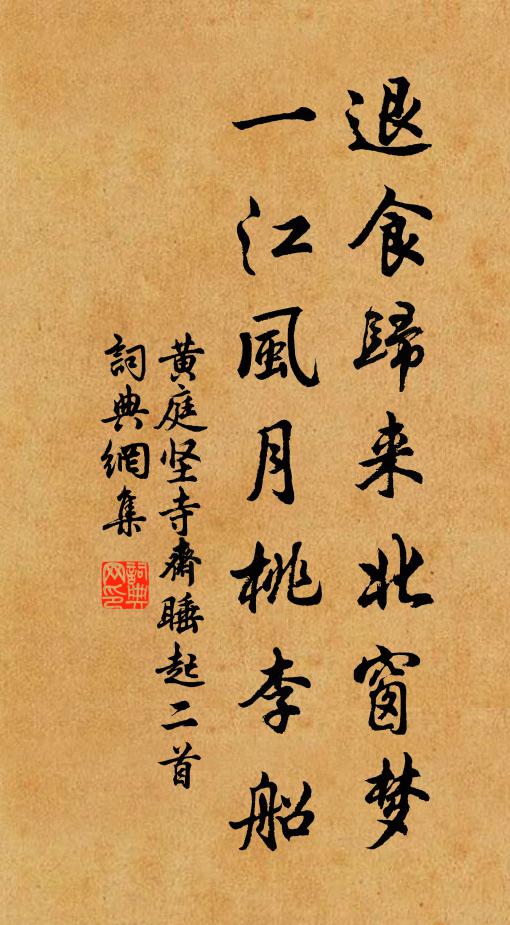 退食歸来北窗梦
一江風月桃李船
黄庭坚寺斋睡起二首
詞典網集
詞典网印